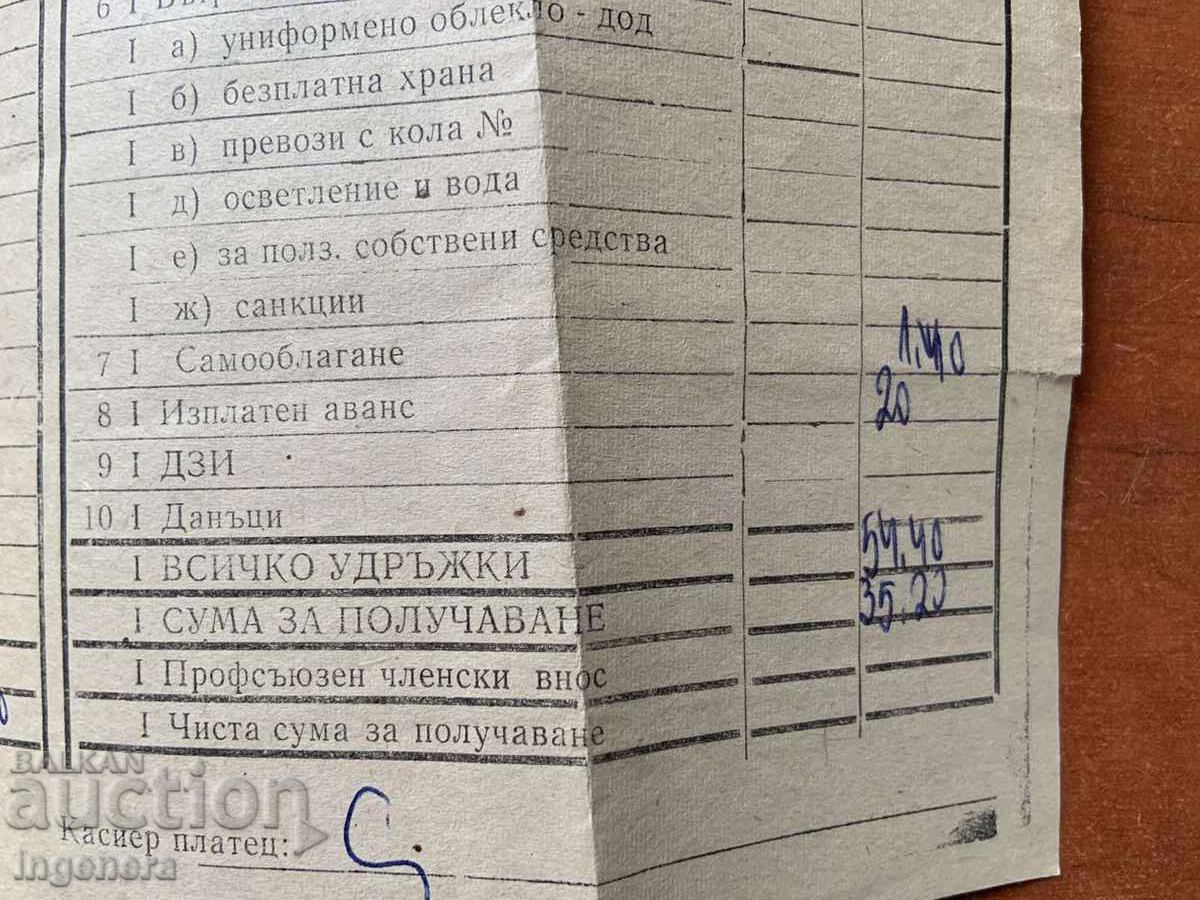 6 I
I а) униформено облекло - дод
I б) безплатна храна
I в) превози с кола №
I д) осветление и вода
I е) за полз. собствени средства
I ж) санкции
7 I Самооблагане 1,40
8 I Изплатен аванс 20
9 I ДЗИ
10 I Данъци
I ВСИЧКО УДРЪЖКИ 54,40
I СУМА ЗА ПОЛУЧАВАНЕ 35.23
I Профсъюзен членски внос
I Чиста сума за получаване
BALKAN
auction
Касиер платец:
ingenera